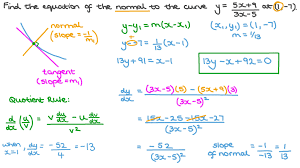 Find the equation of the normal to the curve y = (5x+9)/(3x-5) at (1,-7)
normal
(slope = -1/m)
tangent
(slope = m)
y-y₁ = m(x-x₁)
(x₁, y₁) = (1, -7)
m = 1/13
y--7 = 1/13 (x-1)
13y+91 = x-1
13y-x+92=0
Quotient Rule:
d/dx (u/v) = (v du/dx - u dv/dx)/v²
when x=1, dy/dx = -52/4 = -13
dy/dx = ((3x-5)(5) - (5x+9)(3))/(3x-5)²
= (15x-25-15x-27)/(3x-5)²
= -52/(3x-5)²
slope of normal = -1/-13 = 1/13